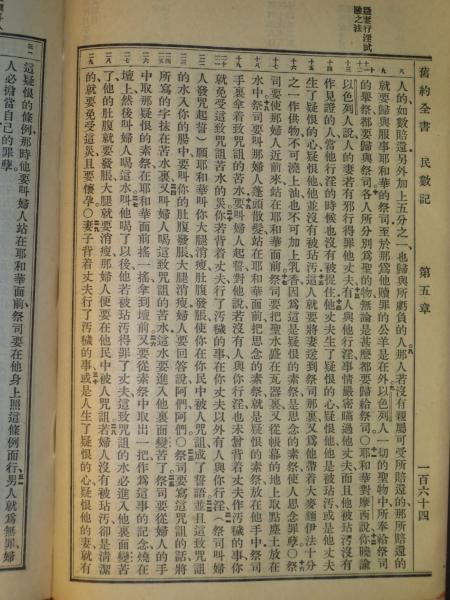 舊約全書 民數記 第五章 一百六十四
人的如數賠還另外加上五分之一也歸與所虧負的人那人若沒有親屬可受所賠還的那所賠還的
就要歸與服事耶和華的祭司至於那爲他贖罪的公羊是在外以色列人一切的聖物中所奉給祭司
的舉祭都要歸與祭司各人所分別爲聖的物無論是甚麽都要歸給祭司〇耶和華對摩西說你曉諭
以色列人說人的妻若有邪行得罪他丈夫有人與他行淫事情嚴密瞞過他丈夫而且他被玷汚沒有
作見證的人當他行淫的時候也沒有被捉住他丈夫生了疑恨的心疑恨他他是被玷汚或是他丈夫
生了疑恨的心疑恨他他並沒有被玷汚這人就要將妻送到祭司那裏又爲他帶着大麥麵伊法十分
之一作供物不可澆上油也不可加上乳香因爲這是疑恨的素祭是思念的素祭使人思念罪孽〇祭
司要使那婦人近前來站在耶和華面前祭司要把聖水盛在瓦器裏又從帳幕的地上取點塵土放在
水中祭司要叫那婦人蓬頭散髮站在耶和華面前把思念的素祭就是疑恨的素祭放在他手中祭司
手裏拿着致咒詛的苦水要叫婦人起誓對他說若沒有人與你行淫也未曾背着丈夫作汚穢的事你
就免受這致咒詛苦水的災你若背着丈夫行了汚穢的事在你丈夫以外有人與你行淫(祭司叫婦
人發咒起誓)願耶和華叫你大腿消瘦肚腹發脹使你在你民中被人咒詛成了誓語並且這致咒詛
的水入你的腸中要叫你的肚腹發脹大腿消瘦婦人要回答說阿們阿們〇祭司要寫這咒詛的話將
所寫的字抹在苦水裏又叫婦人喝這致咒詛的苦水這水要進入他裏面變苦了祭司要從婦人的手
中取那疑恨的素祭在耶和華面前搖一搖拿到壇前又要從素祭中取出一把作爲這事的記念燒在
壇上然後叫婦人喝這水叫他喝了以後他若被玷汚得罪了丈夫這致咒詛的水必進入他裏面變苦
了他的肚腹就要發脹大腿就要消瘦那婦人便要在他民中被人咒詛若婦人沒有被玷汚卻是清潔
的就要免受這災且要懷孕〇妻子背着丈夫行了汚穢的事或是人生了疑恨的心疑恨他的妻就有
疑妻行淫試
驗之法
這疑恨的條例那時他要叫婦人站在耶和華面前祭司要在他身上照這條例而行男人就爲無罪婦
人必擔當自己的罪孽